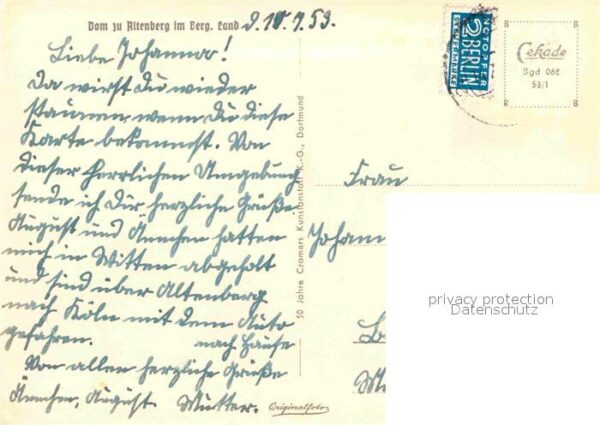 Dom zu Altenberg im Berg. Land
d. 10.7.53.
Liebe Johanna!
Da wirst Du wieder
staunen, wenn Du diese
Karte bekommst. Von
dieser herrlichen Umgebung
sende ich Dir herzliche Grüße.
August und Ännchen hatten
mich in Witten abgeholt
und sind über Altenberg
nach Köln mit dem Auto
gefahren. nach Hause
Von allen herzliche Grüße
Ännchen, August. Mutter.
50 Jahre Cramers Kunstanstalt K.-G., Dortmund
Originalfoto
NOTOPFER
2 BERLIN
STEUERMARKE
Cekade
Bgd 062
53/1
Frau
Johann
privacy protection
Datenschutz